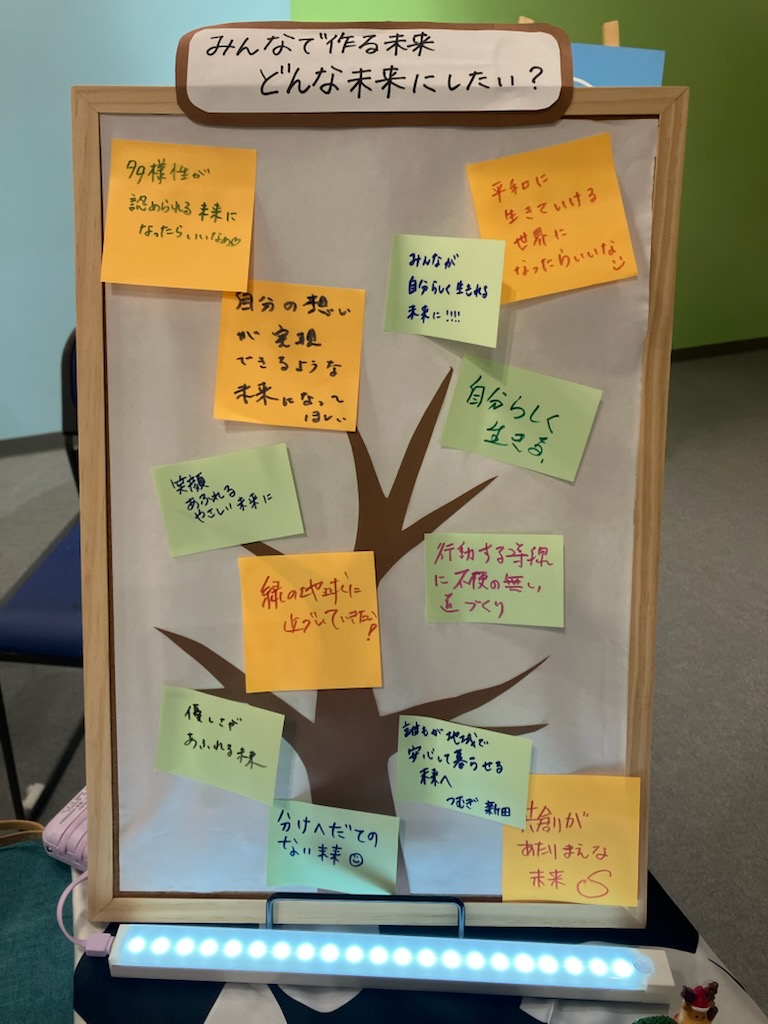 みんなで作る未来
どんな未来にしたい？
多様性が
認められる未来に
なったらいいなぁ
平和に
生きていける
世界に
なったらいいな
みんなが
自分らしく生きれる
未来に!!!!
自分の想い
が実現
できるような
未来になって
ほしい
自分らしく
生きる、
笑顔
あふれる
やさしい未来に
行動する時
に不便の無い
道づくり
緑の地球に
近づいていきたい!
優しさが
あふれる未来
誰もが地域で
安心して暮らせる
未来へ
つむぎ 新田
分けへだての
ない未来
共創が
あたりまえな
未来